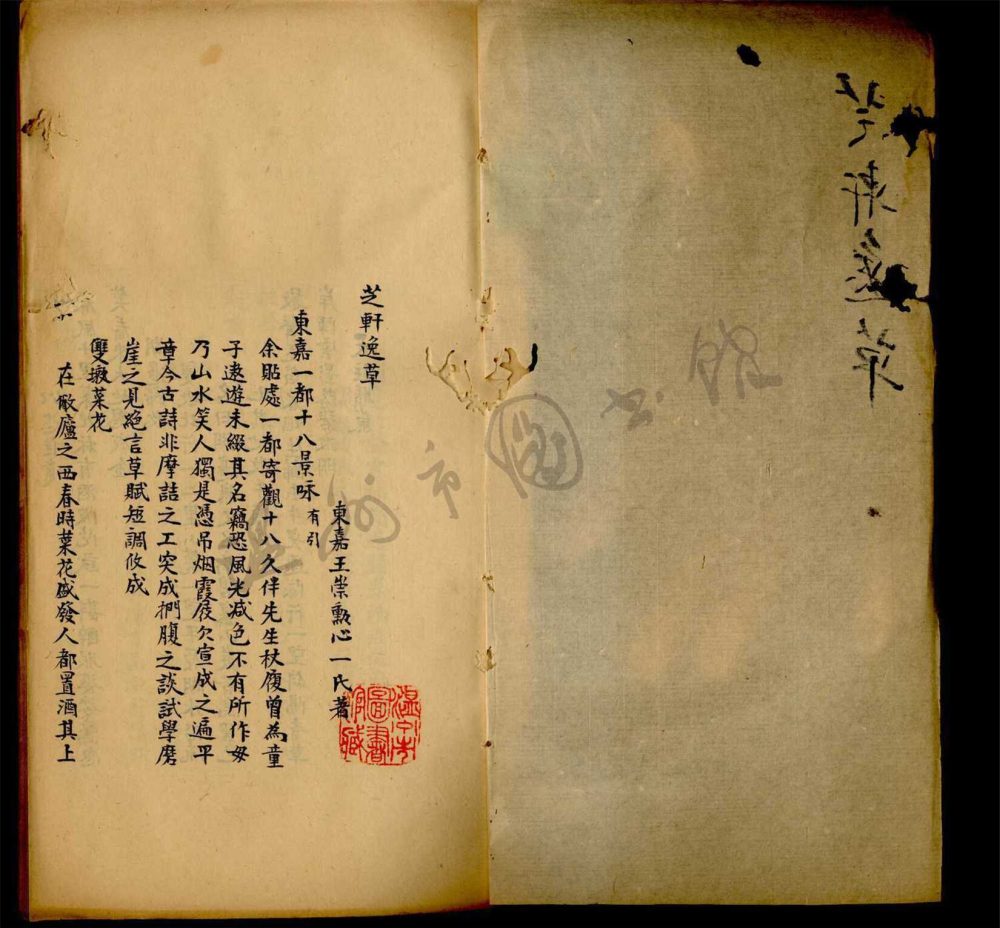 芝軒逸草
芝軒逸草
東嘉王崇勲心一氏著
東嘉一都十八景咏 有引
余貼處一都寄觀十八久伴先生杖履曾為童
子遨遊未綴其名竊恐風光减色不有所作毋
乃山水笑人獨是憑吊烟霞屐欠宣成之遍平
章今古詩非摩詰之工突成捫腹之談試學磨
崖之見絶言草賦短調攸成
雙墩菜花
在敝廬之西春時菜花盛發人都置酒其上
温州市
圖書
館藏
温州市图书馆